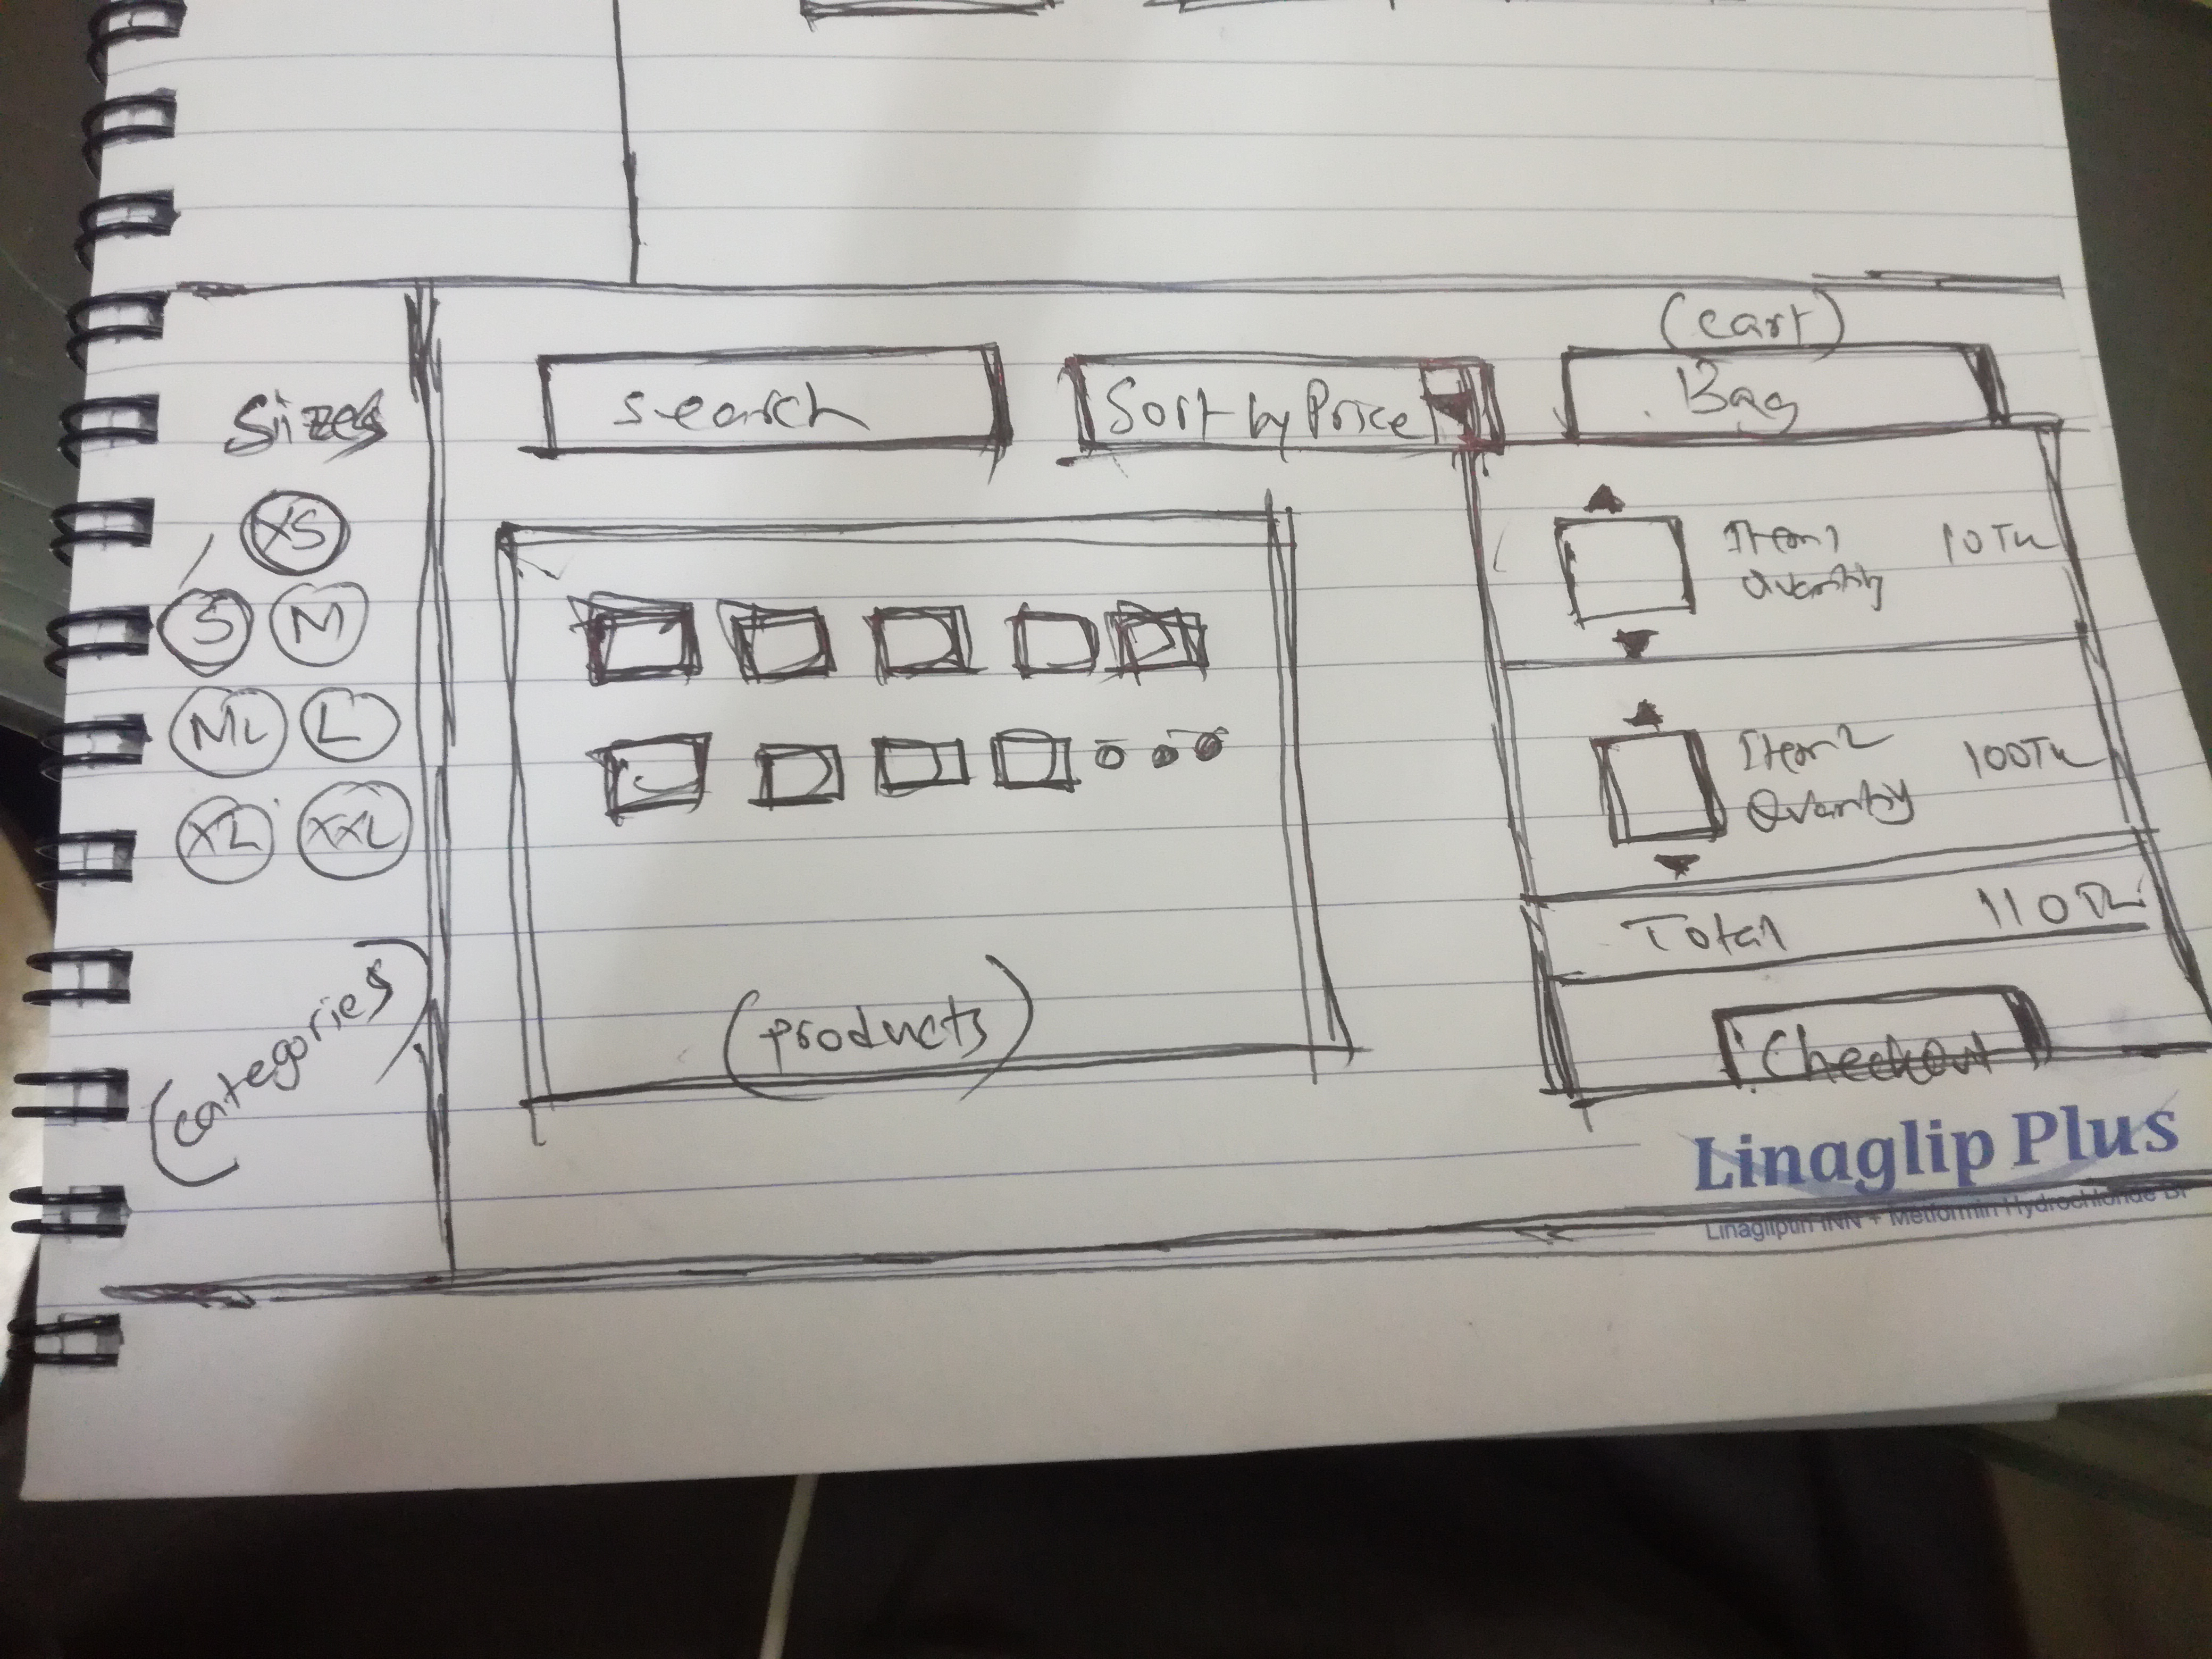 Sizes
XS
S M
ML L
XL XXL
(categories)
search
Sort by Price
(cart)
Bag
Item 1 10Tk
Quantity
Item 2 100Tk
Quantity
Total 110Tk
Checkout
(products)
Linaglip Plus
Linagliptin INN + Metformin Hydrochloride BP